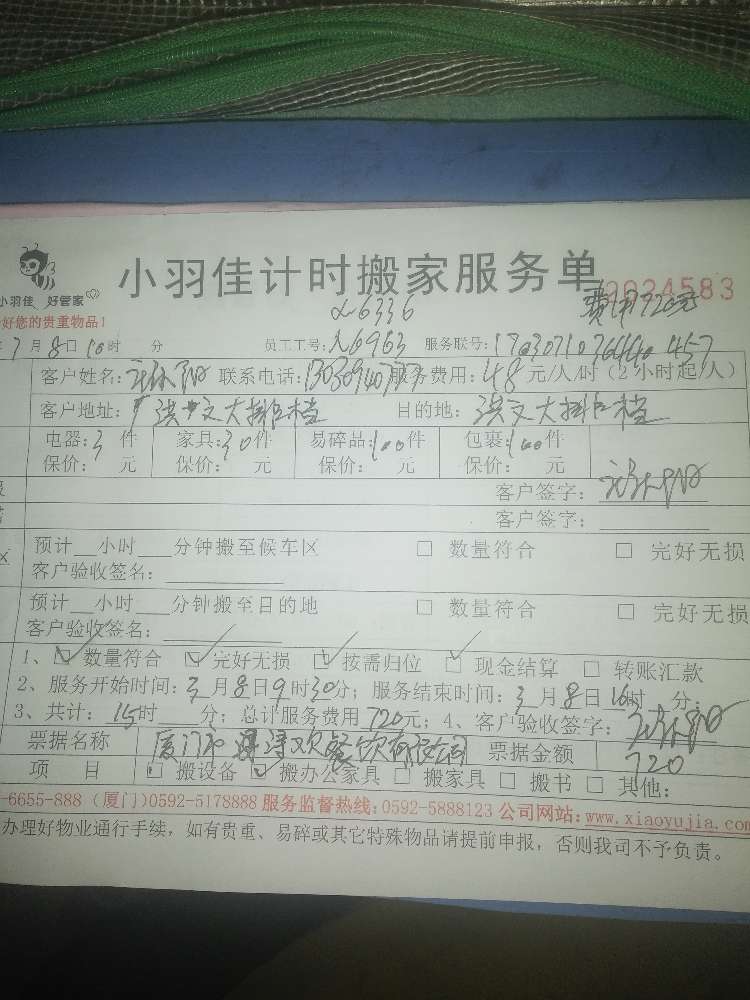 小羽佳计时搬家服务单
小羽佳 好管家
0024583
好您的贵重物品!
6336
费用720元
7月8日10时 分 员工工号:N6963 服务联号:
客户姓名: 联系电话: 服务费用:48元/人/时(2小时起/人)
客户地址:洪文大排档 目的地:洪文大排档
电器:3件 家具:30件 易碎品:100件 包裹:100件
保价: 元 保价: 元 保价: 元 保价: 元
客户签字:
客户签字:
区 预计__小时___分钟搬至候车区 □ 数量符合 □ 完好无损
客户验收签名:
预计__小时___分钟搬至目的地 □ 数量符合 □ 完好无损
客户验收签名:
1、☑ 数量符合 ☑ 完好无损 ☑ 按需归位 ☑ 现金结算 □ 转账汇款
2、服务开始时间:3月8日9时30分;服务结束时间:3月8日16时 分
3、共计:15时___分;总计服务费用720元;4、客户验收签字:
票据名称 厦门 欢餐饮有限公司 票据金额 720
项 目 □ 搬设备 ☑ 搬办公家具 □ 搬家具 □ 搬书 □ 其他:
-6655-888 (厦门)0592-5178888 服务监督热线:0592-5888123 公司网站:www.xiaoyujia.com
办理好物业通行手续,如有贵重、易碎或其它特殊物品请提前申报,否则我司不予负责。